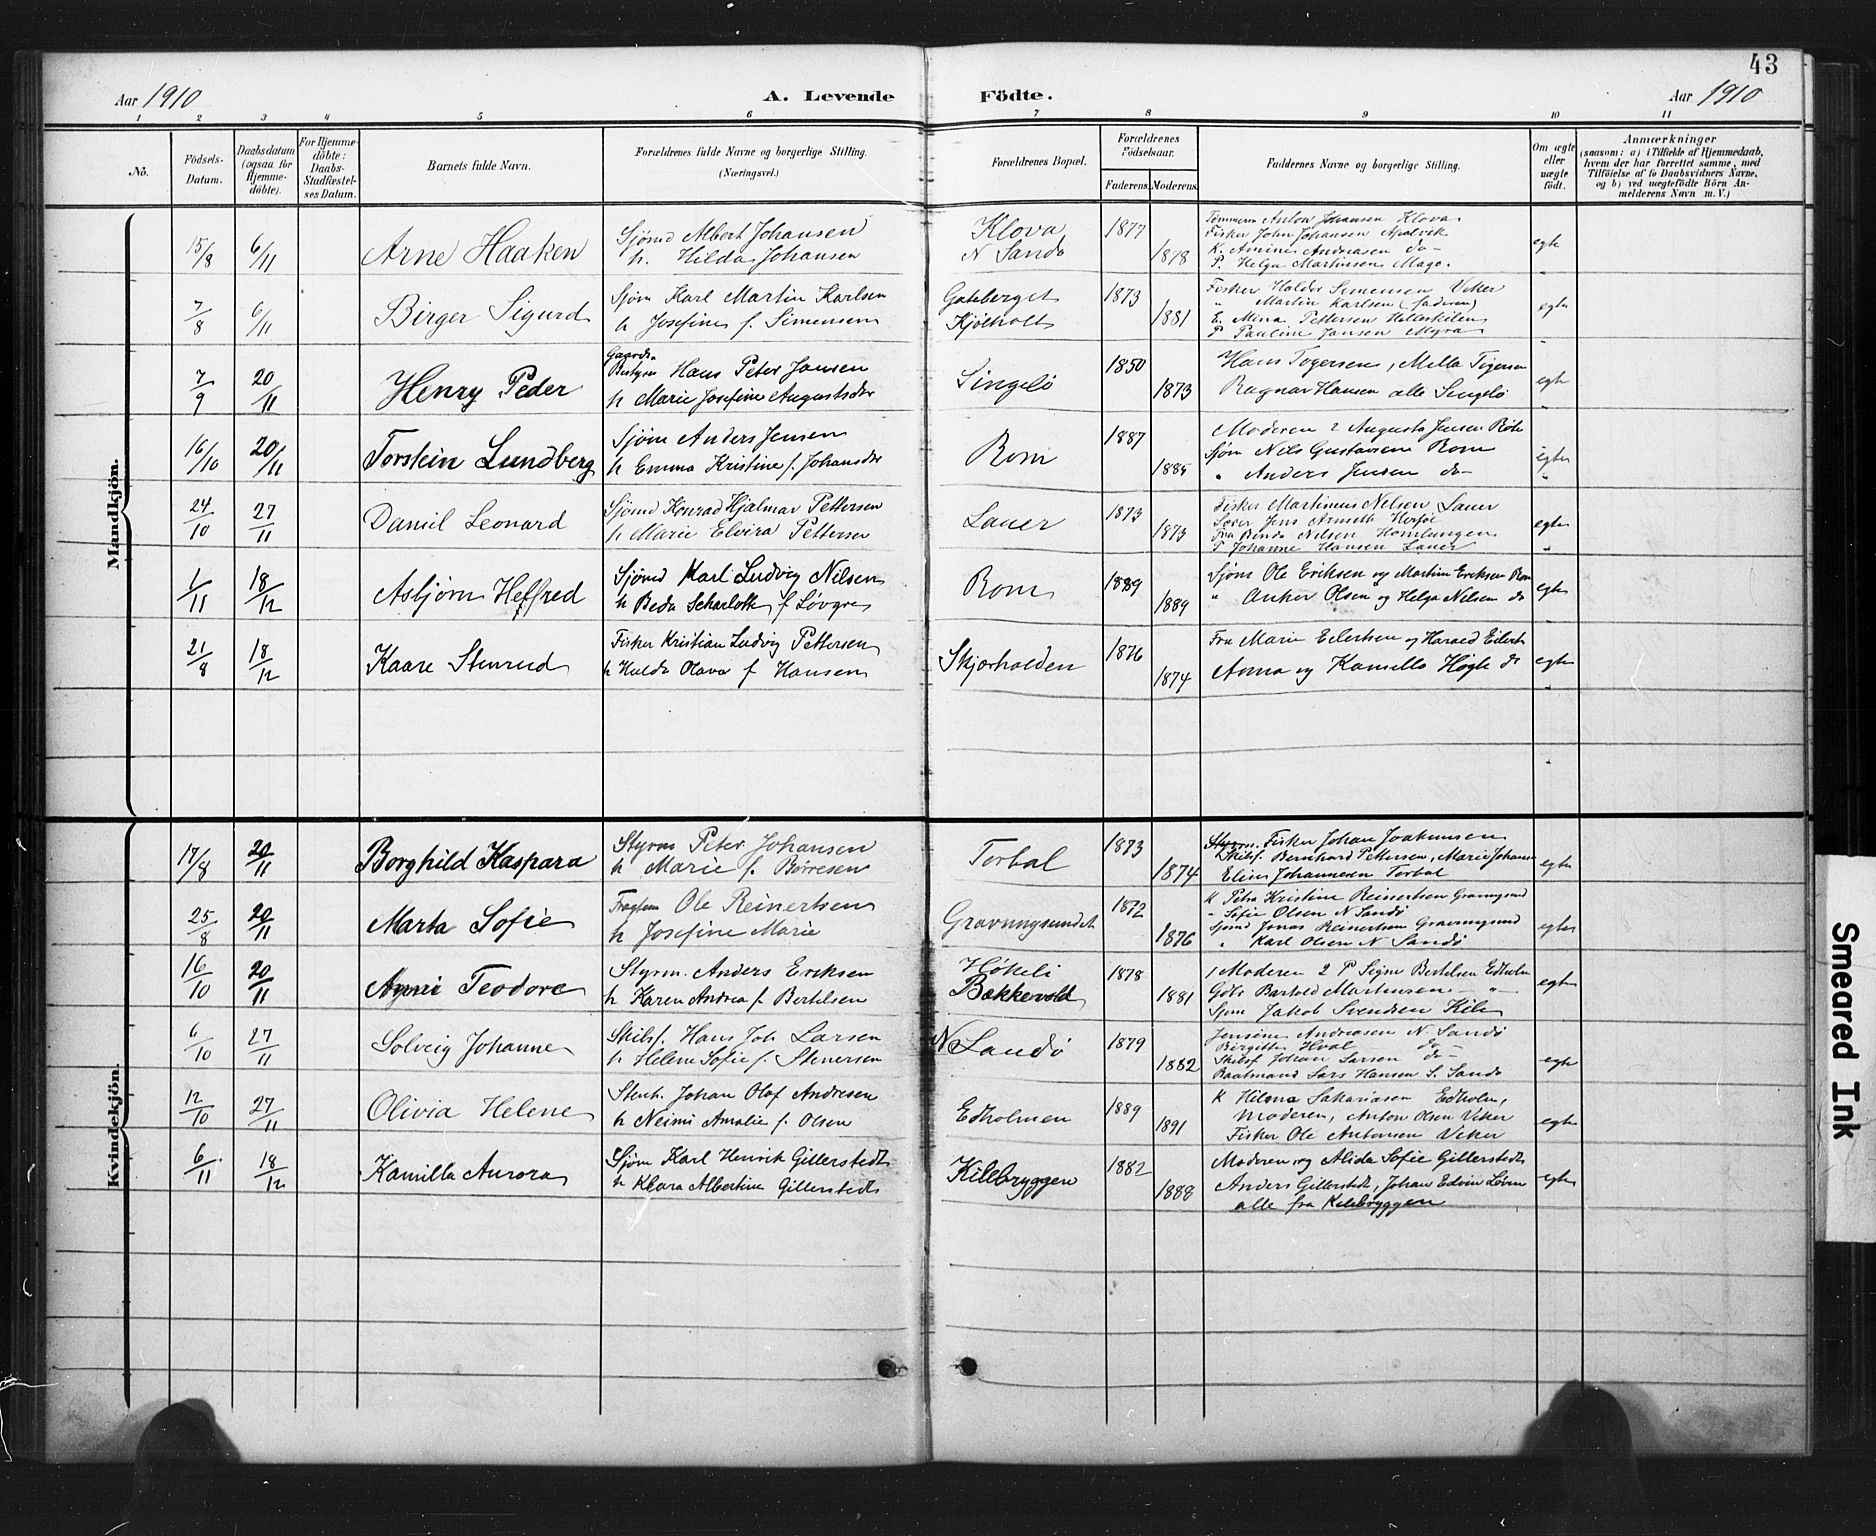 43
Aar 1910
A. Levende Födte.
Aar 1910
1 2 3 4 5 6 7 8 9 10 11
No.
Födsels-Datum.
Daabsdatum (ogsaa for Hjemme-döbte).
For Hjemme-döbte: Daabs-Stadfæstel-ses Datum.
Barnets fulde Navn.
Forældrenes fulde Navne og borgerlige Stilling. (Næringsvei.)
Forældrenes Bopæl.
Forældrenes Födselsaar.
Faderens. Moderens.
Faddernes Navne og borgerlige Stilling.
Om ægte eller uægte födt.
Anmærkninger
(saasom: a) i Tilfælde af Hjemmedaab, hvem der har forrettet samme, med Tilföielse af to Daabsvidners Navne, og b) ved uægtefödte Börn Anmelderens Navn m. V.)
Mandkjön.
15/8 6/11 Arne Haaken
Sjømd Albert Johansen
h. Hilda Johansen
Klova
N Sandø
1877 1878
Tømmerm Anton Johansen Klova
Fisker John Johansen Apalvik
K. Amine Andreasen do
P. Helga Martinsen Magø.
egte
7/8 6/11 Birger Sigurd
Sjøm Karl Martin Karlsen
h Josefine f. Simensen
Gateberget
Kjølholt
1873 1881
Fisker Haldor Simensen Viker
" Martin Karlsen (faderen)
E. Mina Pettersen Hellerkilen
P Pauline Jansen Myra
egte
7/9 20/11 Henry Peder
Gaards-
Bestyrer Hans Peter Jansen
h Marie Josefine Augustsdtr
Singelø
1850 1873
Hans Togersen, Milla Tigersen
Ragnar Hansen alle Singelø
egte
16/10 20/11 Torstein Lundberg
Sjøm Anders Jensen
h Emma Kristine f. Johansdtr
Rom
1887 1885
Moderen 2 Augusta Jensen
Sjøm Nils Gustavsen Rom
" Anders Jensen do
egte
24/10 27/11 Daniel Leonard
Sjømd Konrad Hjalmar Pettersen
h Marie Elvira Pettersen
Lauer
1873 1873
Fisker Martinus Nelsen Lauer
Jens Arneth Herføl
Fru Nilsen Homlungen
P Johanne Hansen Lauer
egte
1/11 18/12 Asbjørn Helfred
Sjømd Karl Ludvig Nilsen
h Beda Scharlotte f Løvgren
Rom
1889 1889
Sjøm Ole Eriksen og Martin Eriksen Rom
" Anker Olsen og Helga Nilsen do
egte
21/8 18/12 Kaare Stenrud
Fisker Kristian Ludvig Pettersen
h Hulda Olava f Hansen
Skjærhalden
1876 1874
Fru Marie Eilertsen og Harald Eilert
Anna og Kamilla Høgle do
egte
Kvindekjön.
17/8 20/11 Borghild Kaspara
Styrm Peter Johansen
h Marie f. Børresen
Torbal
1873 1874
Styrm. Fisker Johan Joakimsen
Skibsf. Bernhard Pettersen, Marie Johans
Elise Johannesen Torbal
egte
25/8 20/11 Marta Sofie
Ole Reinertsen
h Josefine Marie
Gravningsundet
1872 1876
K Petra Kristine Reinertsen Gravngsund
" Sofie Olsen N Sandø
Sjømd Jonas Reinertsen Gravngsund
" Karl Olsen N Sandø
egte
16/10 20/11 Agni Teodore
Styrm. Anders Eriksen
h Karen Andrea f. Bertelsen
Høkeli
Bækkevold
1878 1881
1 Moderen 2 P Signe Bertelsen Edholm
Gdbr Barthold Martinsen "
Sjøm Jakob Svendsen Kile
egte
6/10 27/11 Solveig Johanne
Skibsf. Hans Joh Larsen
h Helene Sofie f. Stenersen
N Sandø
1879 1882
Jensine Andreasen N. Sandø
Birgitte Hval do
Skibsf Johan Larsen do
Baatsmand Lars Hansen S. Sandø
egte
12/10 27/11 Olivia Helene
Stenh. Johan Olaf Andresen
h Neimi Amalie f. Olsen
Edholmen
1889 1891
K Hilma Sakariasen Edholm,
Moderen, Anton Olsen Viker
Fisker Ole Antonsen Viker
egte
6/11 18/12 Kamilla Aurora
Sjøm Karl Henrik Gillerstedt
h Klara Albertine Gillerstedt
Kilebryggen
1882 1888
Moderen og Alida Sofie Gillerstedt
Anders Gillerstedt, Johan Edvin Løvn
alle fra Kilebryggen
egte
Smeared Ink